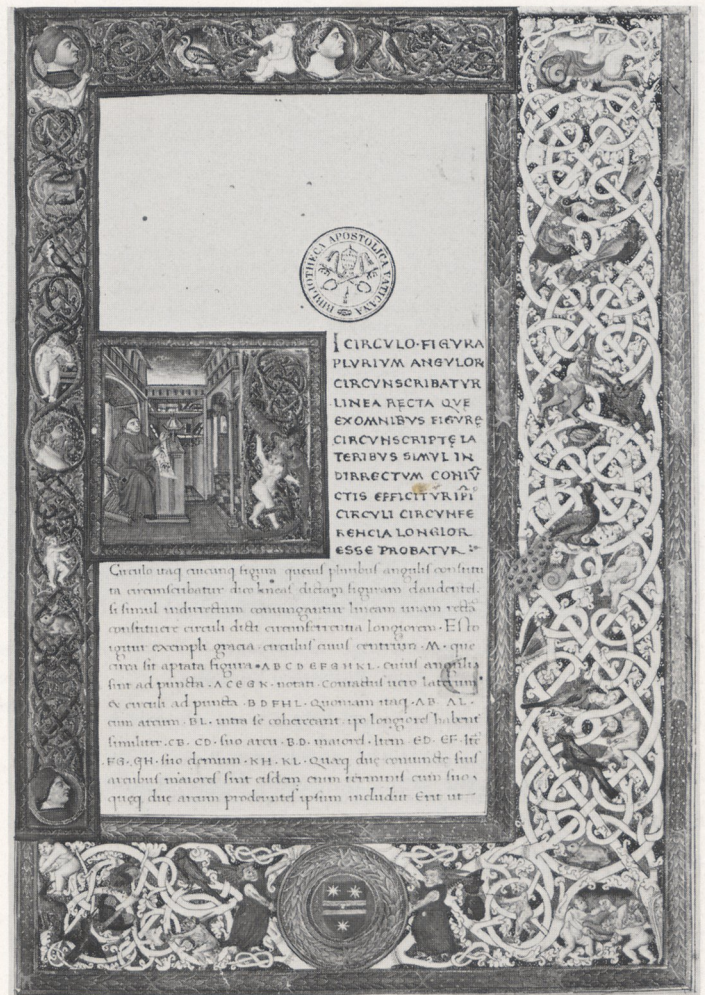 BIBLIOTHECA APOSTOLICA VATICANA
I CIRCVLO·FIGVRA
PLVRIVM ANGVLOR
CIRCVNSCRIBATVR
LINEA RECTA QVE
EX OMNIBVS FIGVRĘ
CIRCVNSCRIPTĘ LA
TERIBVS SIMVL IN
DIRRECTVM CONIV̂
CTIS EFFICITVR IP̂I
CIRCVLI CIRCVNFE
RENCIA LONGIOR
ESSE PROBATVR
Circulo itaq cuicunq figura quevis pluribus angulis constitu
ta circumscribatur dico lineas dictam figuram claudentes
si simul indirectum coniungantur lineam unam rectā
constituere circuli dicti circumferentia longiorem· Esto
igitur exempli gracia· circulus cuius centrum·M·que
circa sit aptata figura·ABCDEFGHKL·cuius anguli
sint ad puncta·ACEGK·notati Contactus uero laterum
& circuli ad puncta·BDFHL·Quoniam itaq·AB·AL·
cum arcum·BL·intra se coherceant· ipo longiores habent
similiter·CB·CD·suo arcu·BD·maiores·Item·ED·EF·Itē
·FG·GH·suo demum·KH·KL·Quarq due coniuncte suis
arcubus maiores sint eisdem cum terminis cum suo
queq due arcum prodeuntes ipsum includūt Erit ut